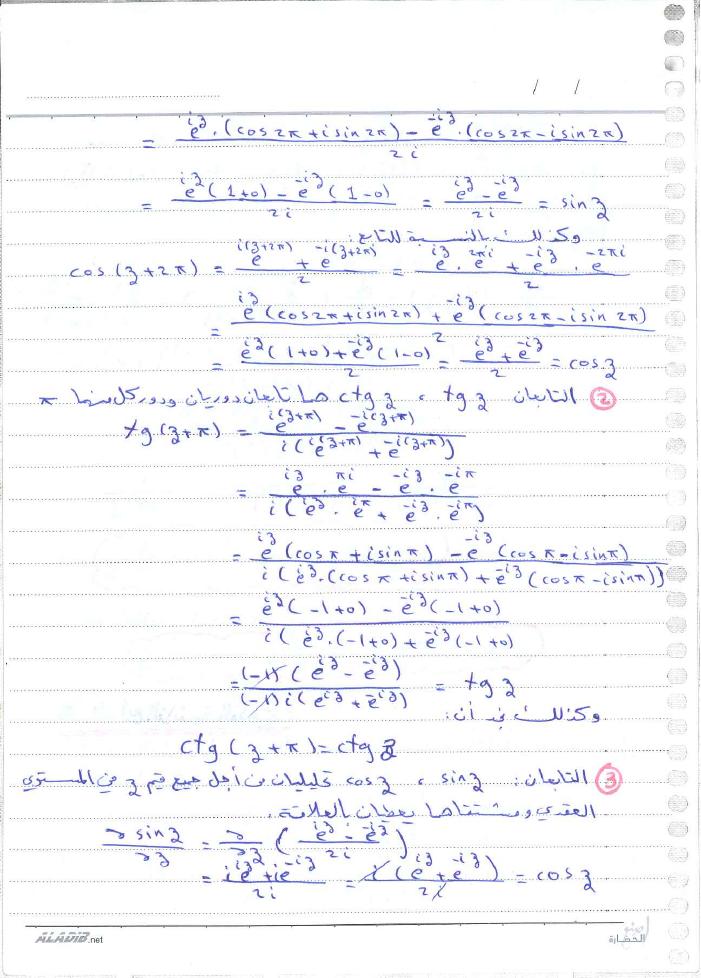 / /
= (e^{iz}.(cos 2π + i sin 2π) - e^{-iz}.(cos 2π - i sin 2π)) / 2i
= (e^{iz}(1+0) - e^{-iz}(1-0)) / 2i = (e^{iz} - e^{-iz}) / 2i = sin z
وكذلك بالنسبة للتابع:
cos(z+2π) = (e^{i(z+2π)} + e^{-i(z+2π)}) / 2 = (e^{iz}.e^{2πi} + e^{-iz}.e^{-2πi}) / 2
= (e^{iz}(cos 2π + i sin 2π) + e^{-iz}(cos 2π - i sin 2π)) / 2
= (e^{iz}(1+0) + e^{-iz}(1-0)) / 2 = (e^{iz} + e^{-iz}) / 2 = cos z
② التابعان tg z ، ctg z هما تابعان دوريان ودور كل منهما π
tg(z+π) = (e^{i(z+π)} - e^{-i(z+π)}) / i(e^{i(z+π)} + e^{-i(z+π)})
= (e^{iz}.e^{πi} - e^{-iz}.e^{-iπ}) / i(e^{iz}.e^{iπ} + e^{-iz}.e^{-iπ})
= (e^{iz}(cos π + i sin π) - e^{-iz}(cos π - i sin π)) / i(e^{iz}.(cos π + i sin π) + e^{-iz}(cos π - i sin π))
= (e^{iz}(-1+0) - e^{-iz}(-1+0)) / i(e^{iz}.(-1+0) + e^{-iz}(-1+0)
= (-1)(e^{iz} - e^{-iz}) / (-1)i(e^{iz} + e^{-iz}) = tg z
وكذلك نجد أن:
ctg(z+π) = ctg z
③ التابعان: sin z ، cos z تحليليان من أجل جميع قيم z في المستوي
العقدي ومشتقاها يعطان بالعلاقة.
∂ sin z / ∂z = ∂/∂z ((e^{iz} - e^{-iz}) / 2i)
= (ie^{iz} + ie^{-iz}) / 2i = i(e^{iz} + e^{-iz}) / 2i = cos z
ALADIB.net
الحضارة